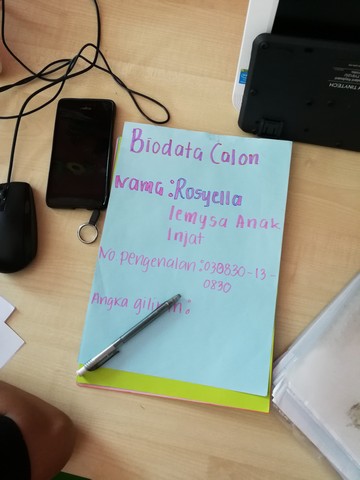 Biodata Calon
Nama : Rosyella
lemysa Anak
Injat
No. pengenalan : 030830-13-
0830
Angka giliran :
TINYTECH